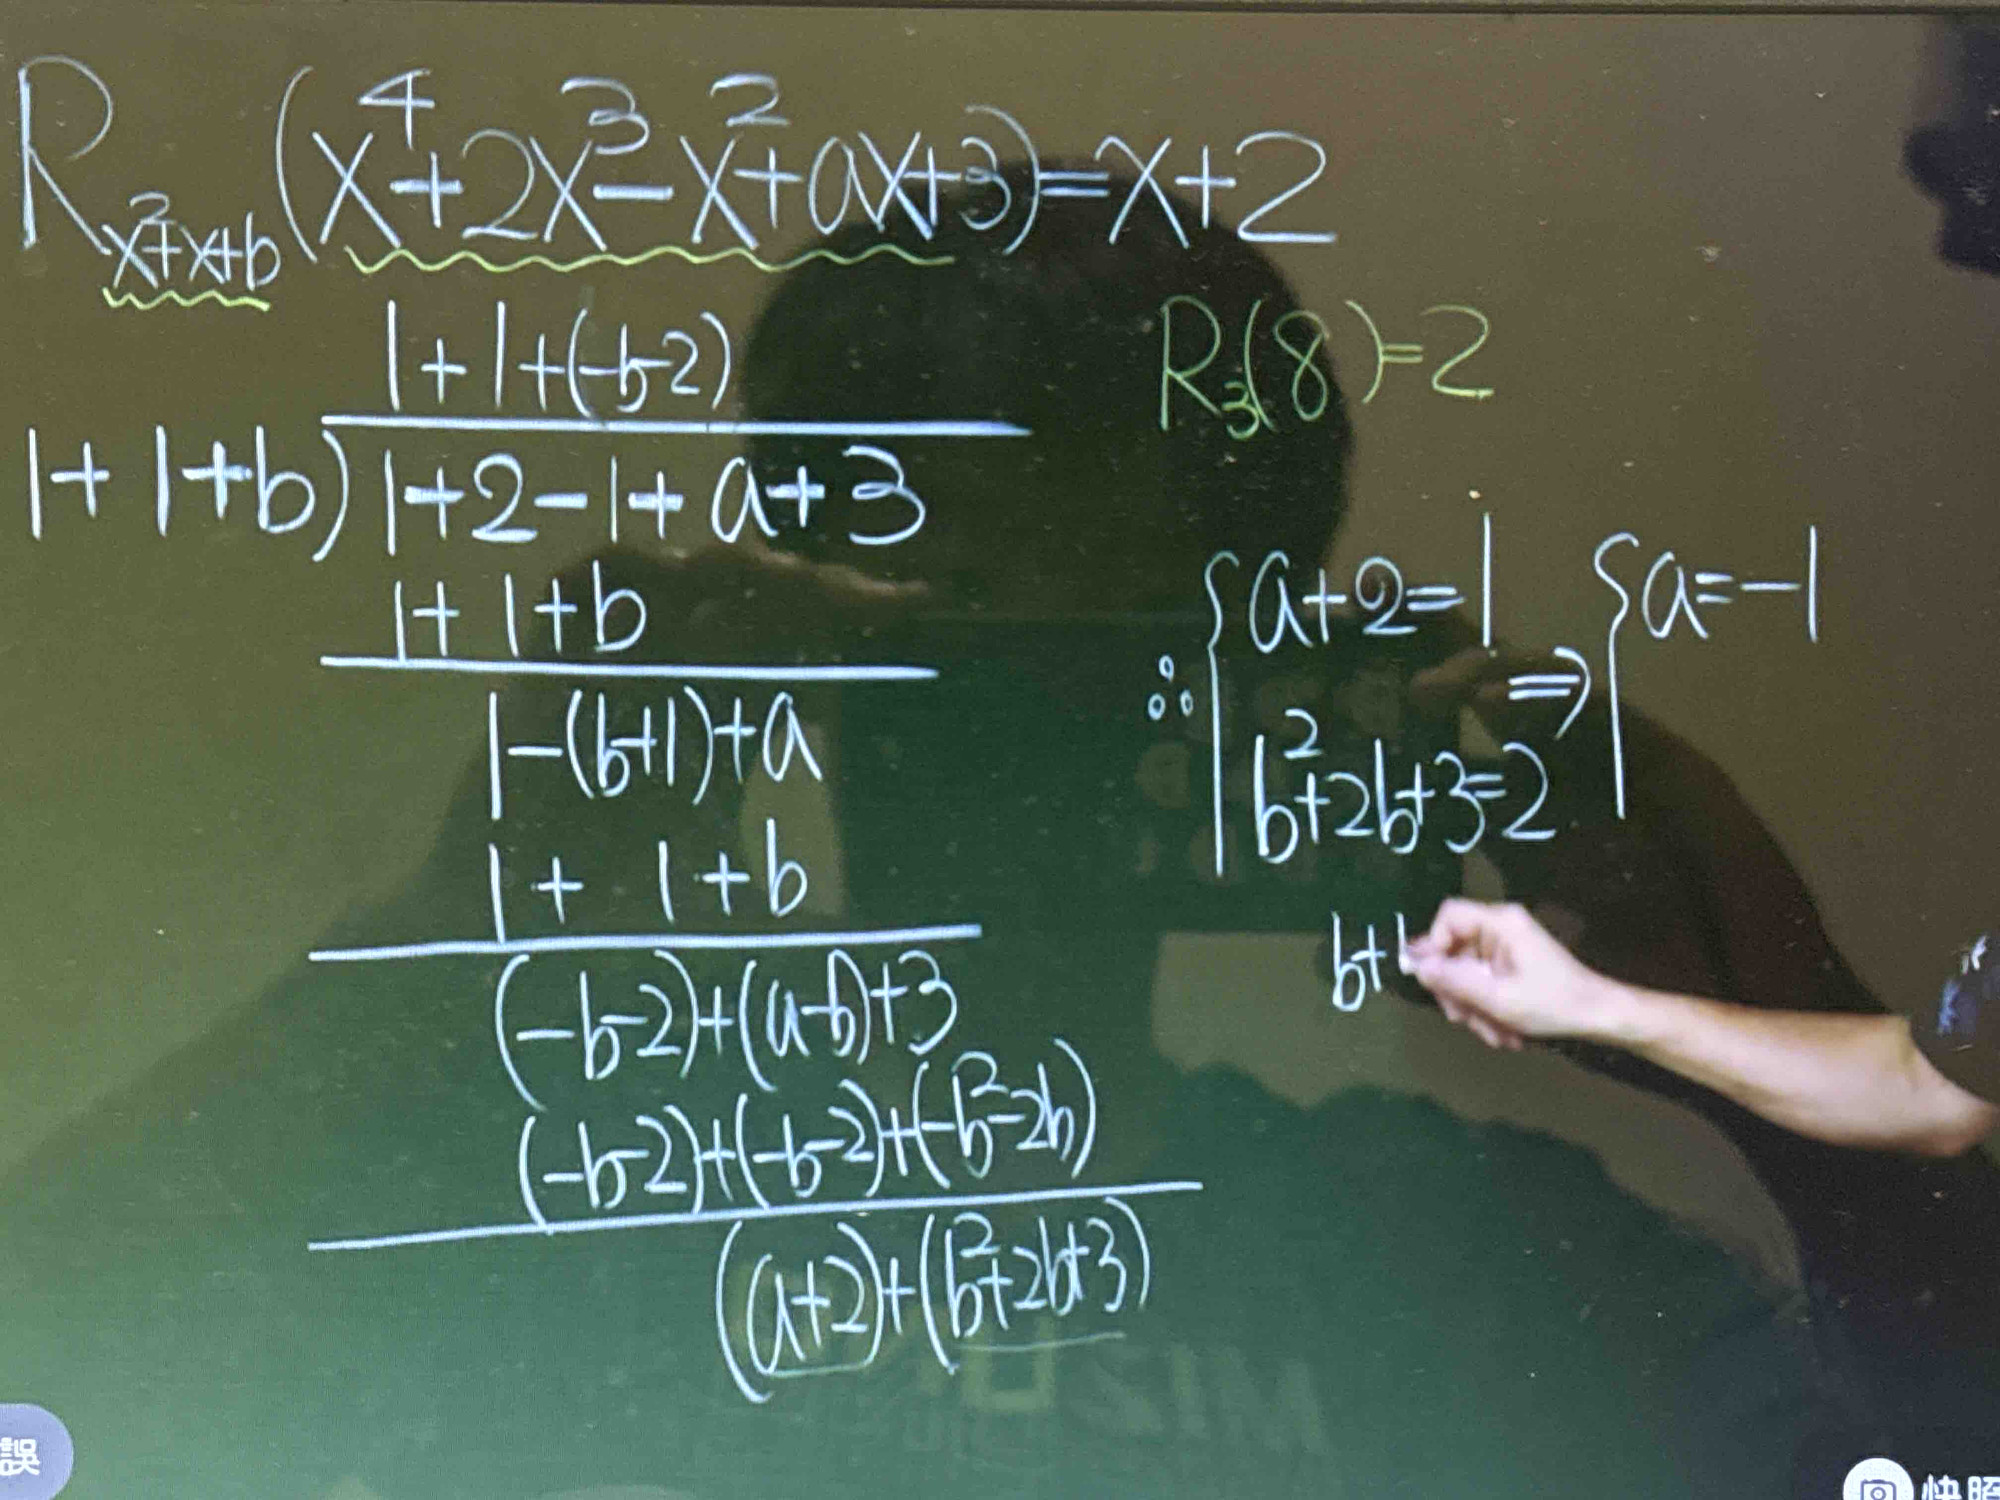 R_{x²+x+b}(x⁴+2x³-x²+ax+3)=x+2
R₃(8)=2
1+1+(-b-2)
1+1+b)1+2-1+a+3
1+1+b
1-(b+1)+a
1+1+b
(-b-2)+(a-b)+3
(-b-2)+(-b-2)+(-b²-2b)
(a+2)+(b²+2b+3)
∴ { a+2=1 ⇒ { a=-1
b²+2b+3=2
b+
誤
快照